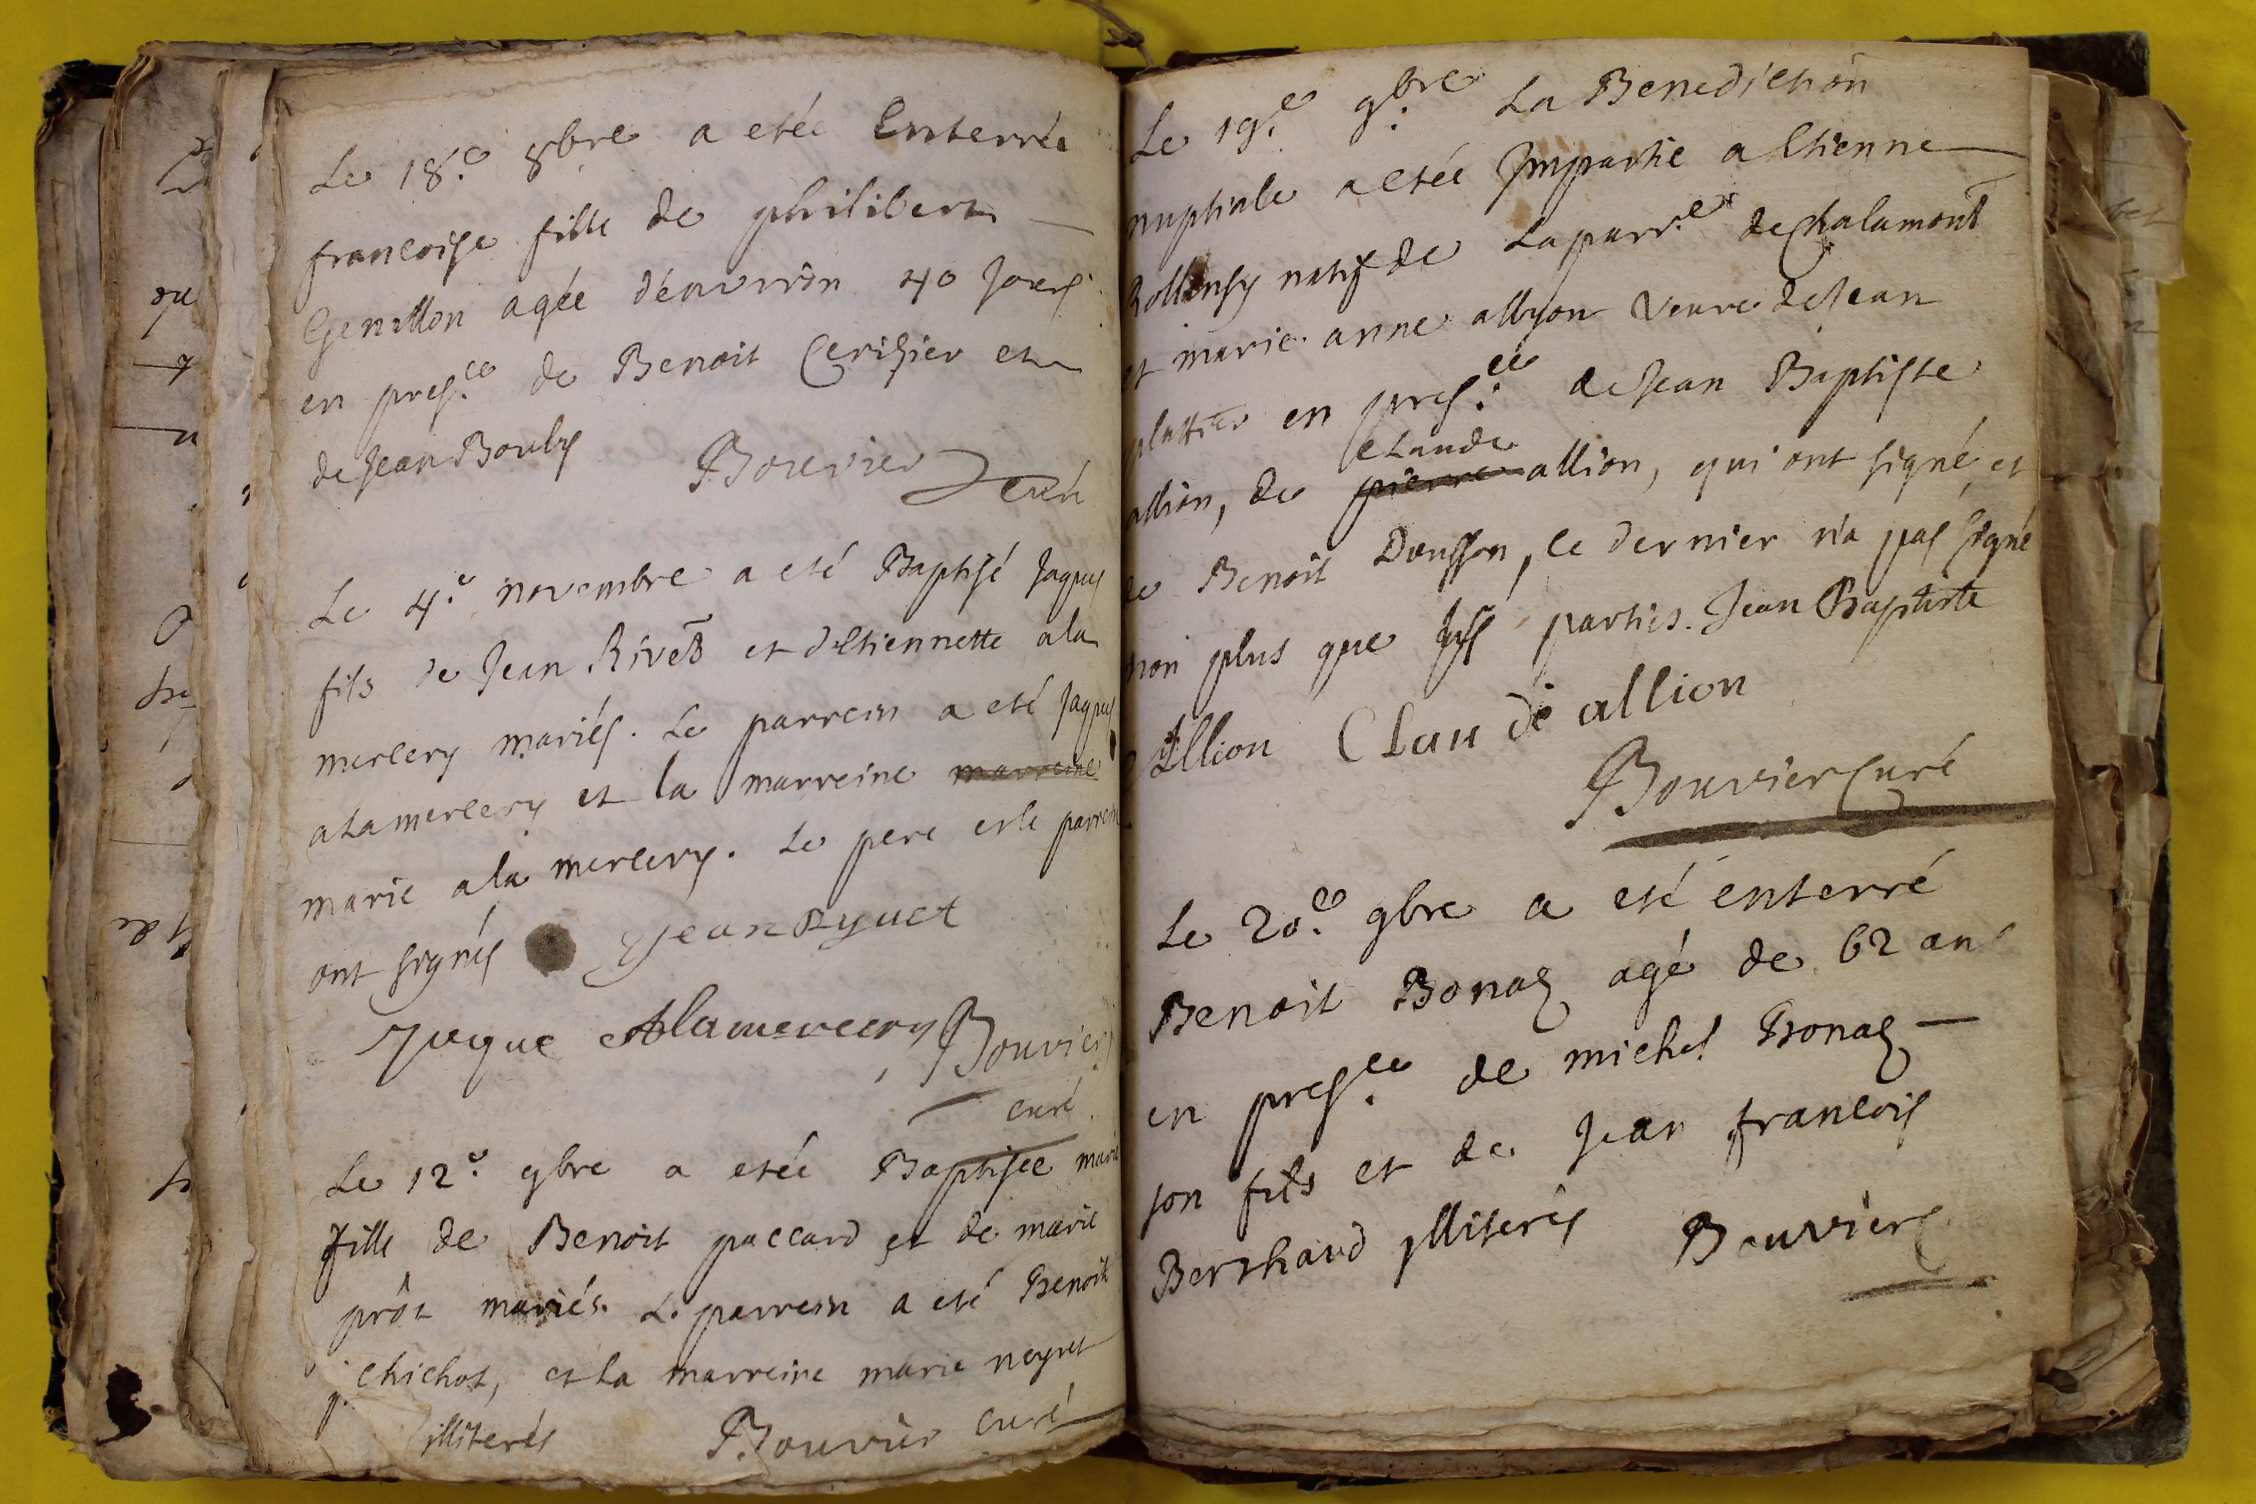 Le 18.e 8bre a etée Enterrée
francoise fille de philibert
Genillon agée d'environ 40 jours
en pres.ce de Benoit Cerisier et
de Jean Bouby Bouvier curé
Le 4.e novembre a eté Baptisé Jaques
fils de Jean Rivet et d'Etiennette ala
mercery mariés. Le parrein a eté Jaques
alamercery et la marreine marreine
marie ala mercery. Le pere et le parrein
ont signés Jean Ryuet
Jaque Alamercery Bouvier
curé
Le 12.e 9bre a etée Baptisée marie
fille de Benoit paccard et de marie
prôt mariés. Le parrein a eté Benoit
chichot, et la marreine marie neyret
illiterés Bouvier curé
Le 19.e 9bre La Benediction
nuptiale a etée Impartie a Etienne
natif de la parr.e de chalamont
et marie anne allyon veuve de Jean
plattier en pres.ce de Jean Baptiste
claude
allion, de pierre allion, qui ont signé, et
de Benoit Dousson, ce dernier n'a pas signé
non plus que les parties. Jean Baptiste
Allion Claude allion
Bouvier curé
Le 20.e 9bre a eté enterré
Benoit Bonaz agé de 62 ans
en pres.ce de michel Bonaz
son fils et de Jean francois
Berthaud illiterés Bouvier c